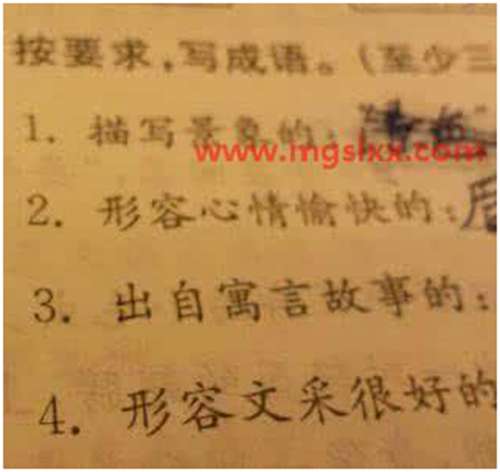 按要求,写成语。(至少三
1. 描写景象的:
www.mgslxx.com
2. 形容心情愉快的:
3. 出自寓言故事的:
4. 形容文采很好的